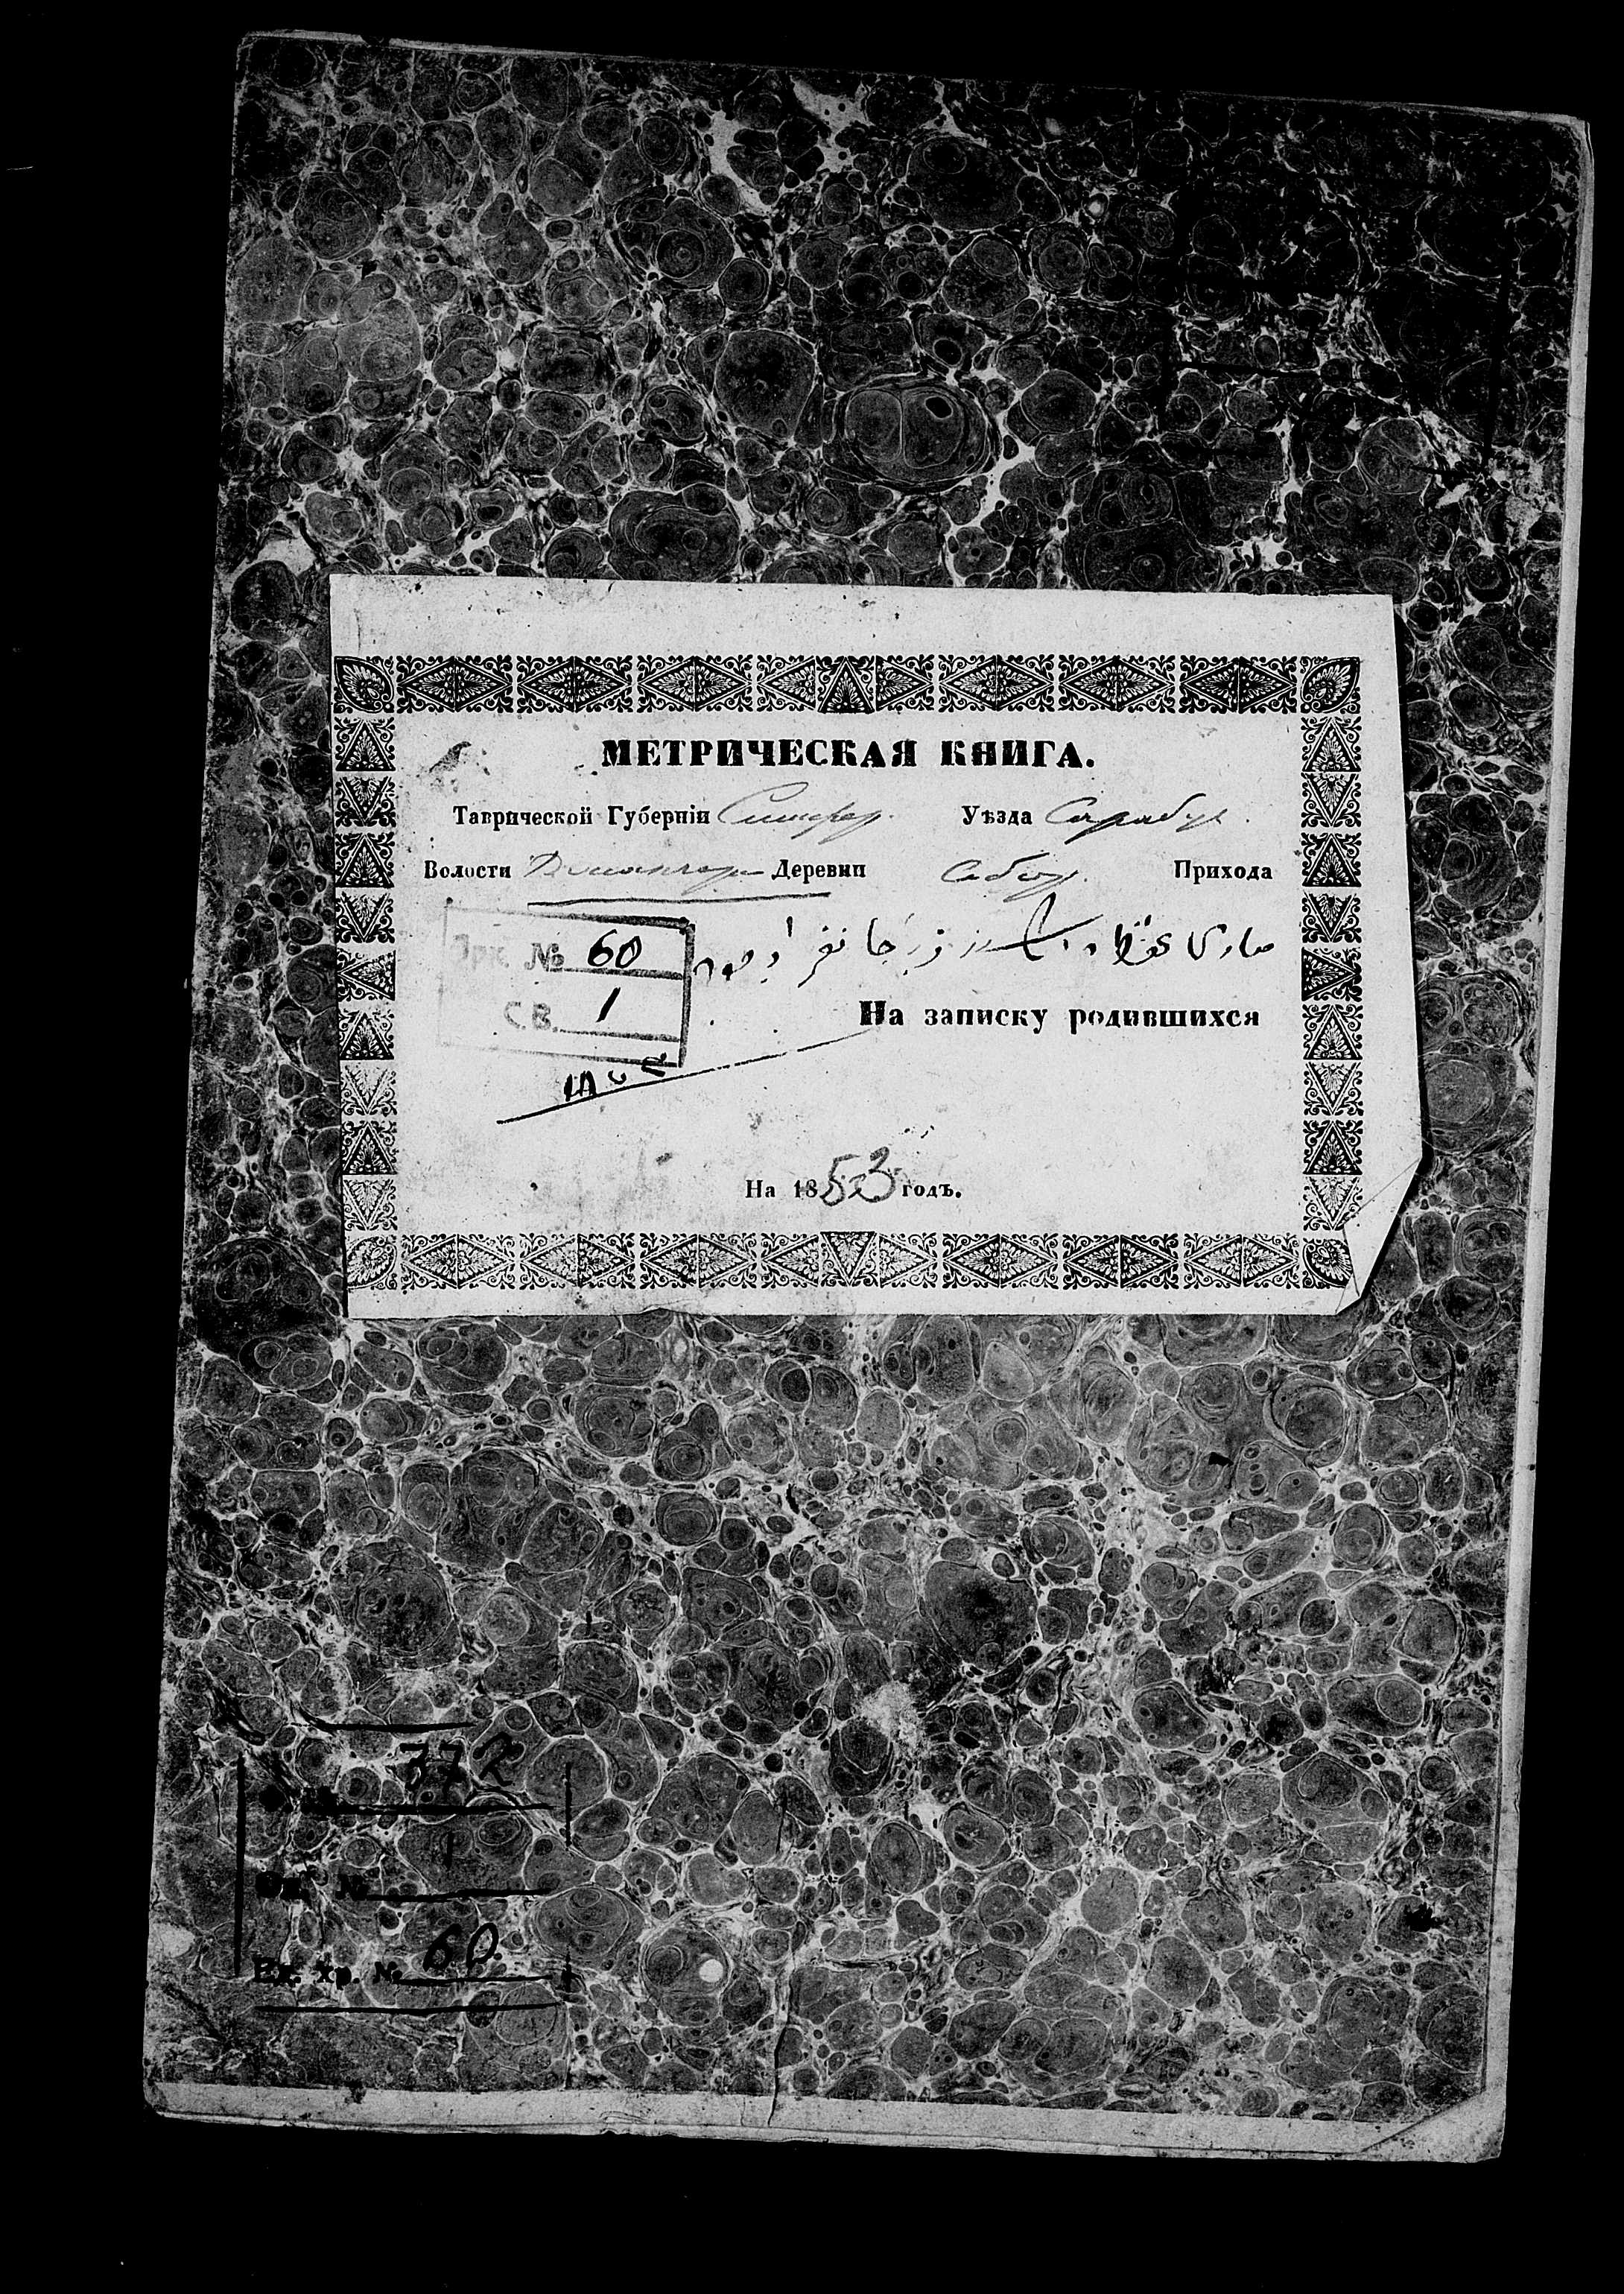 МЕТРИЧЕСКАЯ КНИГА.
Таврической Губерніи Симфер. Уѣзда Сарабуз.
Волости Деревни Прихода
Арх. № 60
СВ. 1
На записку родившихся
На 1853 годъ.
372
1
Ед. хр. № 60